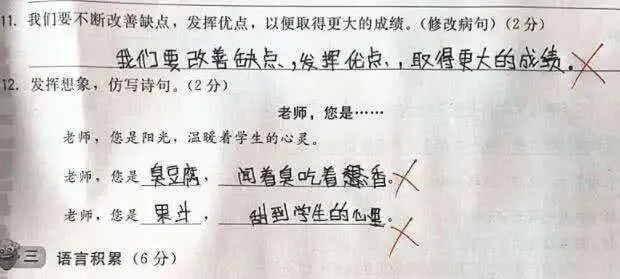 11. 我们要不断改善缺点，发挥优点，以便取得更大的成绩。(修改病句)(2分)
我们要改善缺点,发挥优点,,取得更大的成绩。
12. 发挥想象，仿写诗句。(2分)
老师，您是……
老师，您是阳光，温暖着学生的心灵。
老师，您是 臭豆腐， 闻着臭吃着香。
老师，您是 果斗， 到学生的心里。
三 语言积累(6分)